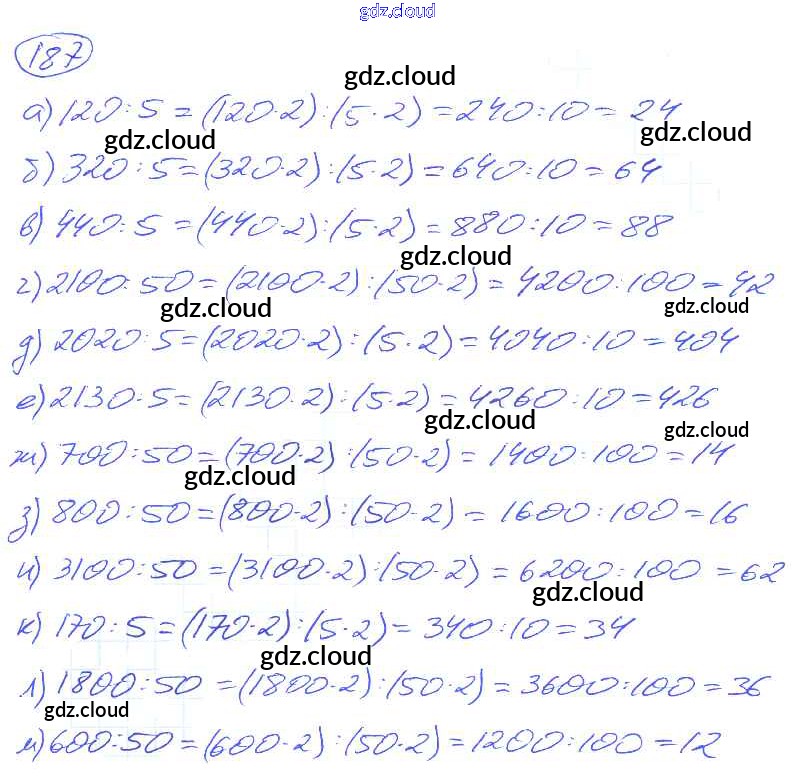 gdz.cloud
187
gdz.cloud
а) 120:5 = (120·2):(5·2) = 240:10 = 24
gdz.cloud gdz.cloud
б) 320:5 = (320·2):(5·2) = 640:10 = 64
в) 440:5 = (440·2):(5·2) = 880:10 = 88
gdz.cloud
г) 2100:50 = (2100·2):(50·2) = 4200:100 = 42
gdz.cloud gdz.cloud
д) 2020:5 = (2020·2):(5·2) = 4040:10 = 404
е) 2130:5 = (2130·2):(5·2) = 4260:10 = 426
gdz.cloud gdz.cloud
ж) 700:50 = (700·2):(50·2) = 1400:100 = 14
gdz.cloud
з) 800:50 = (800·2):(50·2) = 1600:100 = 16
и) 3100:50 = (3100·2):(50·2) = 6200:100 = 62
gdz.cloud
к) 170:5 = (170·2):(5·2) = 340:10 = 34
gdz.cloud
л) 1800:50 = (1800·2):(50·2) = 3600:100 = 36
gdz.cloud
м) 600:50 = (600·2):(50·2) = 1200:100 = 12